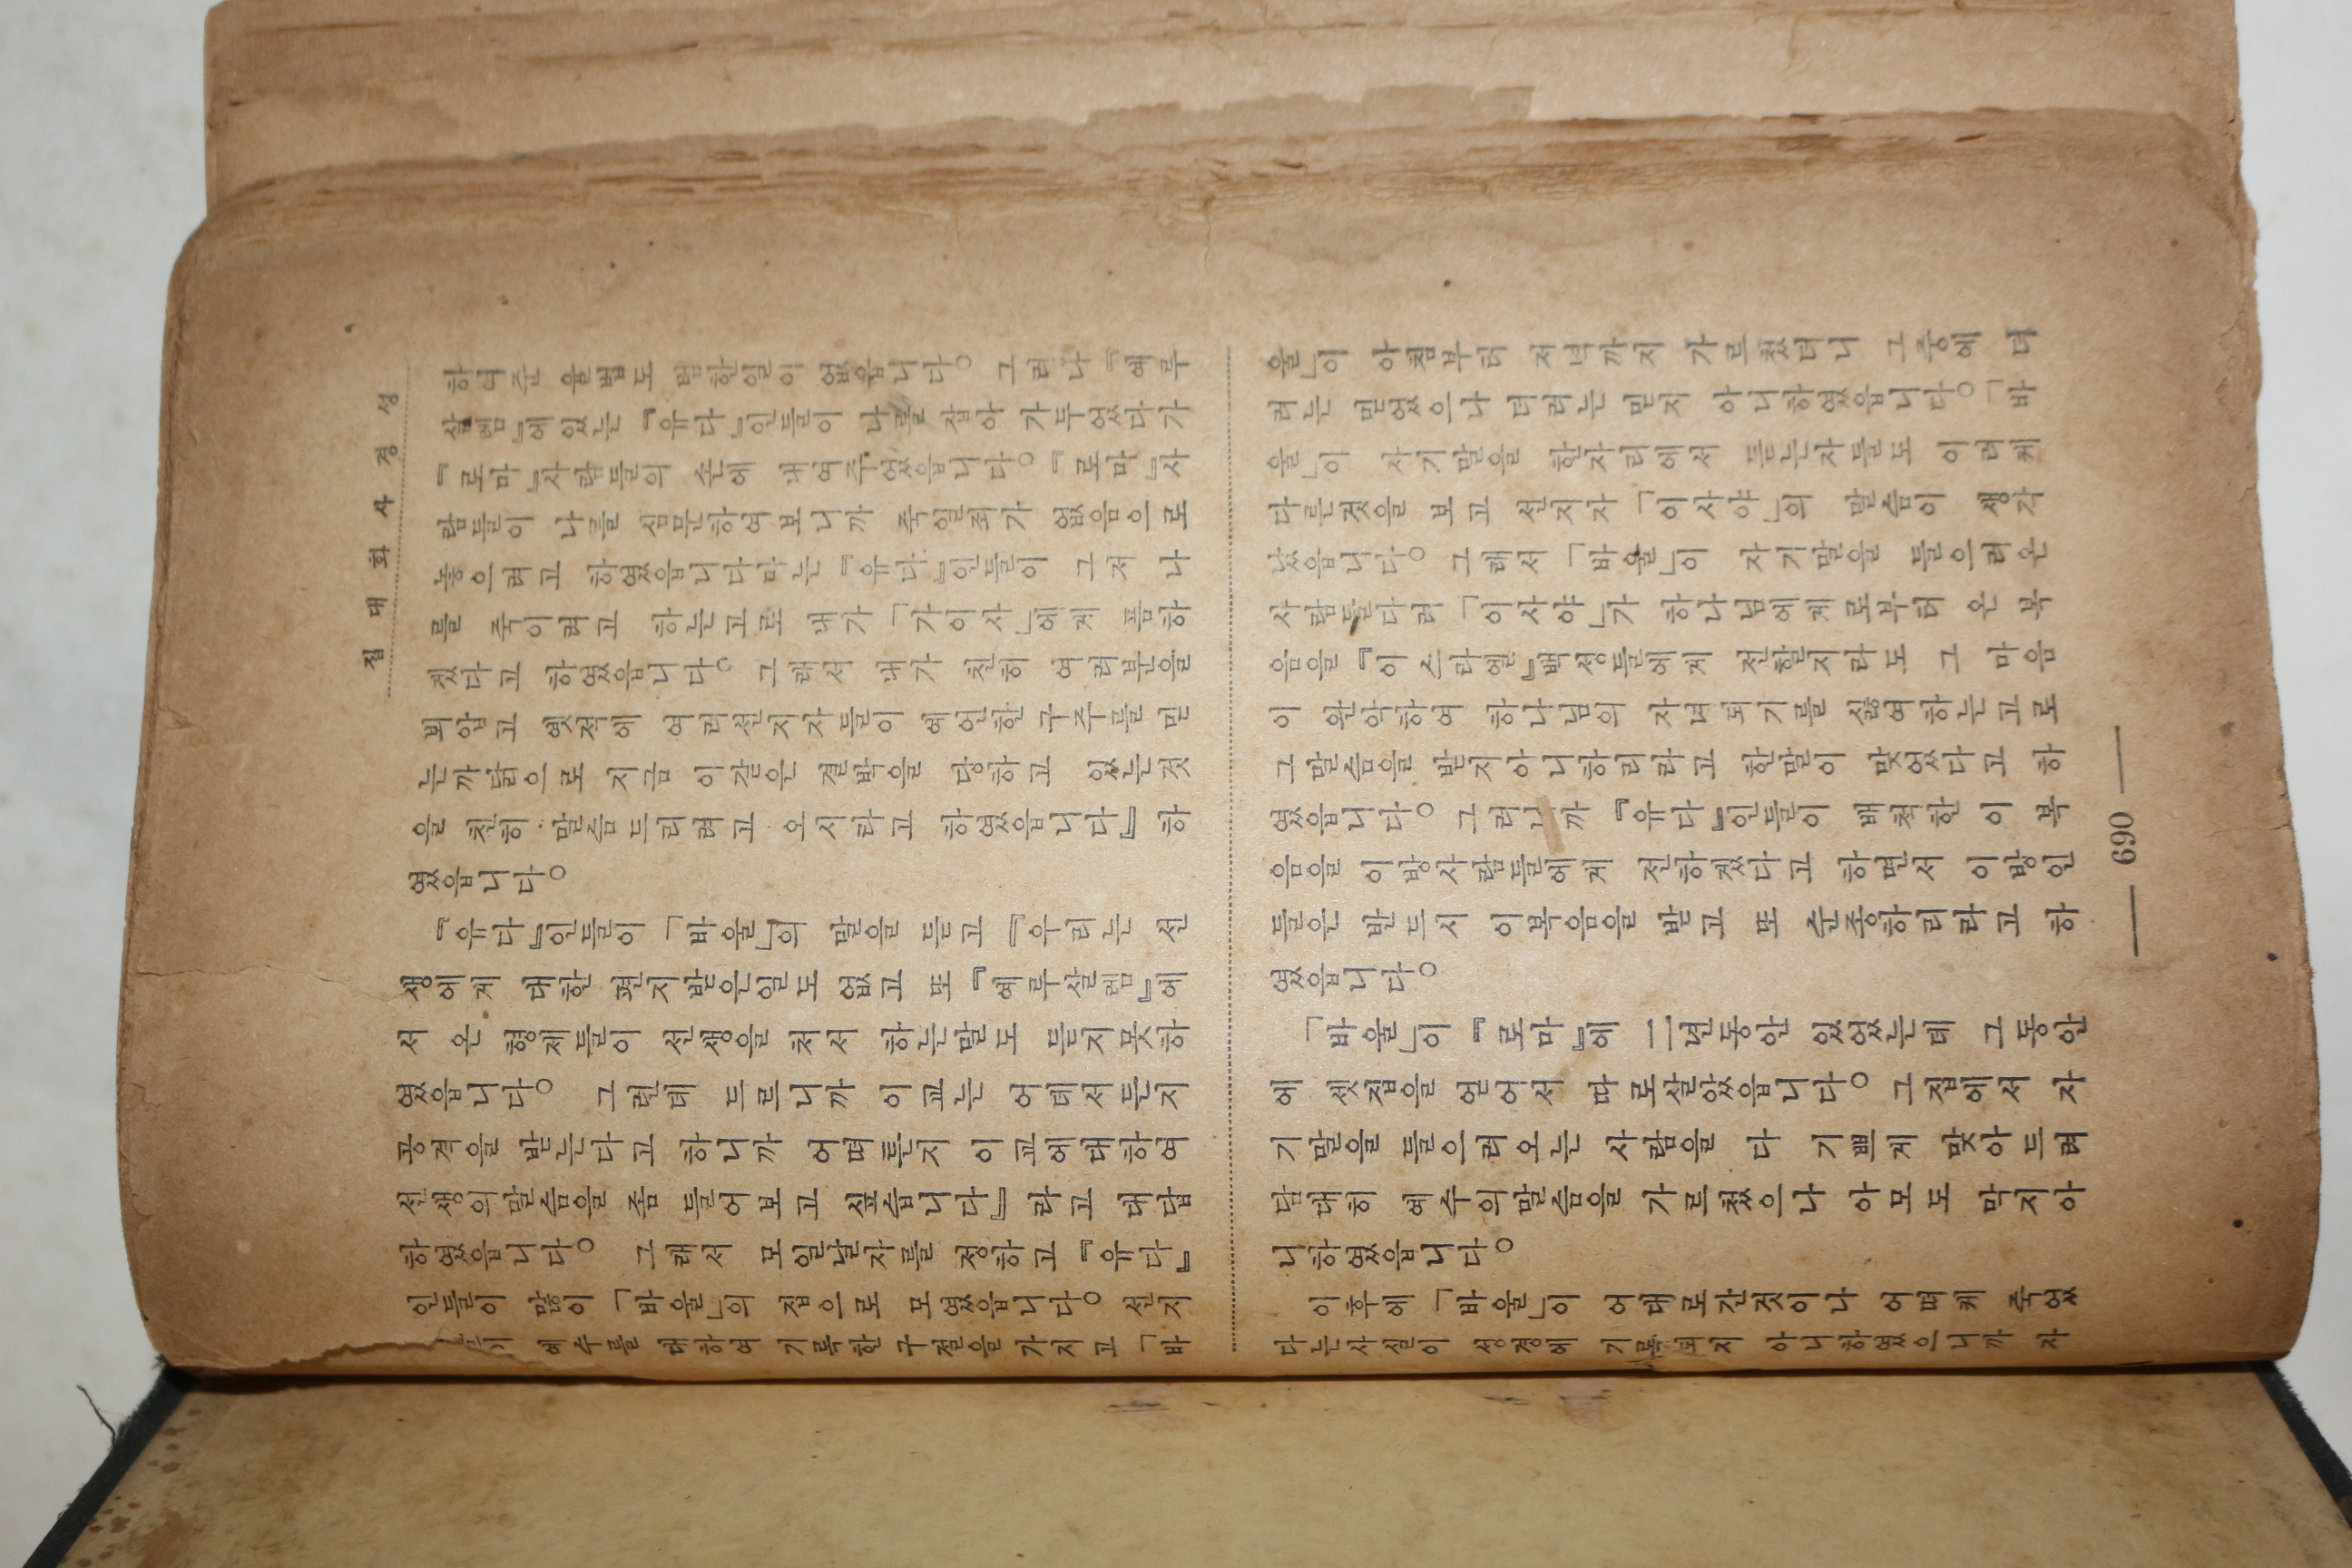 성경사화대집
하여준 율법도 범한일이 없읍니다。 그러나 『예루
살렘』에있는 『유다』인들이 나를 잡아 가두었다가
『로마』사람들의 손에 내여주었읍니다。『로마』사
람들이 나를 심문하여보니까 죽일죄가 없음으로
놓으려고 하였읍니다마는 『유다』인들이 그저 나
를 죽이려고 하는고로 내가 「가이사」에게 품하
겠다고 하였읍니다。 그래서 내가 친히 여러분을
뵈압고 옛적에 여러선지자들이 예언한 구주를 믿
는까닭으로 지금 이같은 결박을 당하고 있는것
을 친히 말슴드리려고 오시라고 하였읍니다』하
였읍니다。
『유다』인들이 「바울」의 말을 듣고 『우리는 선
생에게 대한 편지받은일도 없고 또 『예루살렘』에
서 온 형제들이 선생을 처서 하는말도 듣지못하
였읍니다。 그런데 드르니까 이교는 어데서든지
공격을 받는다고 하니까 어떠튼지 이교에대하여
선생의말슴을 좀 들어보고 싶습니다』라고 대답
하였읍니다。 그래서 모일날자를 정하고 『유다』
인들이 많이 「바울」의 집으로 모였읍니다。 선지
예수를 대하여 기록한 구절을 가지고 「바
울」이 아침부터 저녁까지 가르쳤더니 그중에 더
러는 믿었으나 더러는 믿지 아니하였읍니다。「바
울」이 사기말을 한자리에서 듣는자들도 이러케
다른것을 보고 선지자 「이사야」의 말슴이 생각
났읍니다。 그래서 「바울」이 자기말을 들으러온
사람들다려 「이사야」가 하나님에게로부터 온 복
음을 『이스라엘』백성들에게 전할지라도 그 마음
이 완악하여 하나님의 자녀되기를 싫여하는고로
그말슴을 받지아니하리라고 한말이 맞었다고 하
였읍니다。 그러니까 『유다』인들이 배척한 이 복
음을 이방사람들에게 전하겠다고 하면서 이방인
들은 반드시 이복음을 받고 또 순종하리라고 하
였읍니다。
「바울」이 『로마』에 二년동안 있었는데 그동안
에 셋집을 얻어서 따로살았읍니다。 그집에서 자
기말을 들으러오는 사람을 다 기쁘게 맞아드려
담대히 예수의말슴을 가르첬으나 아모도 막지아
니하였읍니다。
이후에 「바울」이 어대로간것이나 어떠케 죽었
다는사실이 성경에 기록되지 아니하였으니까 자
690